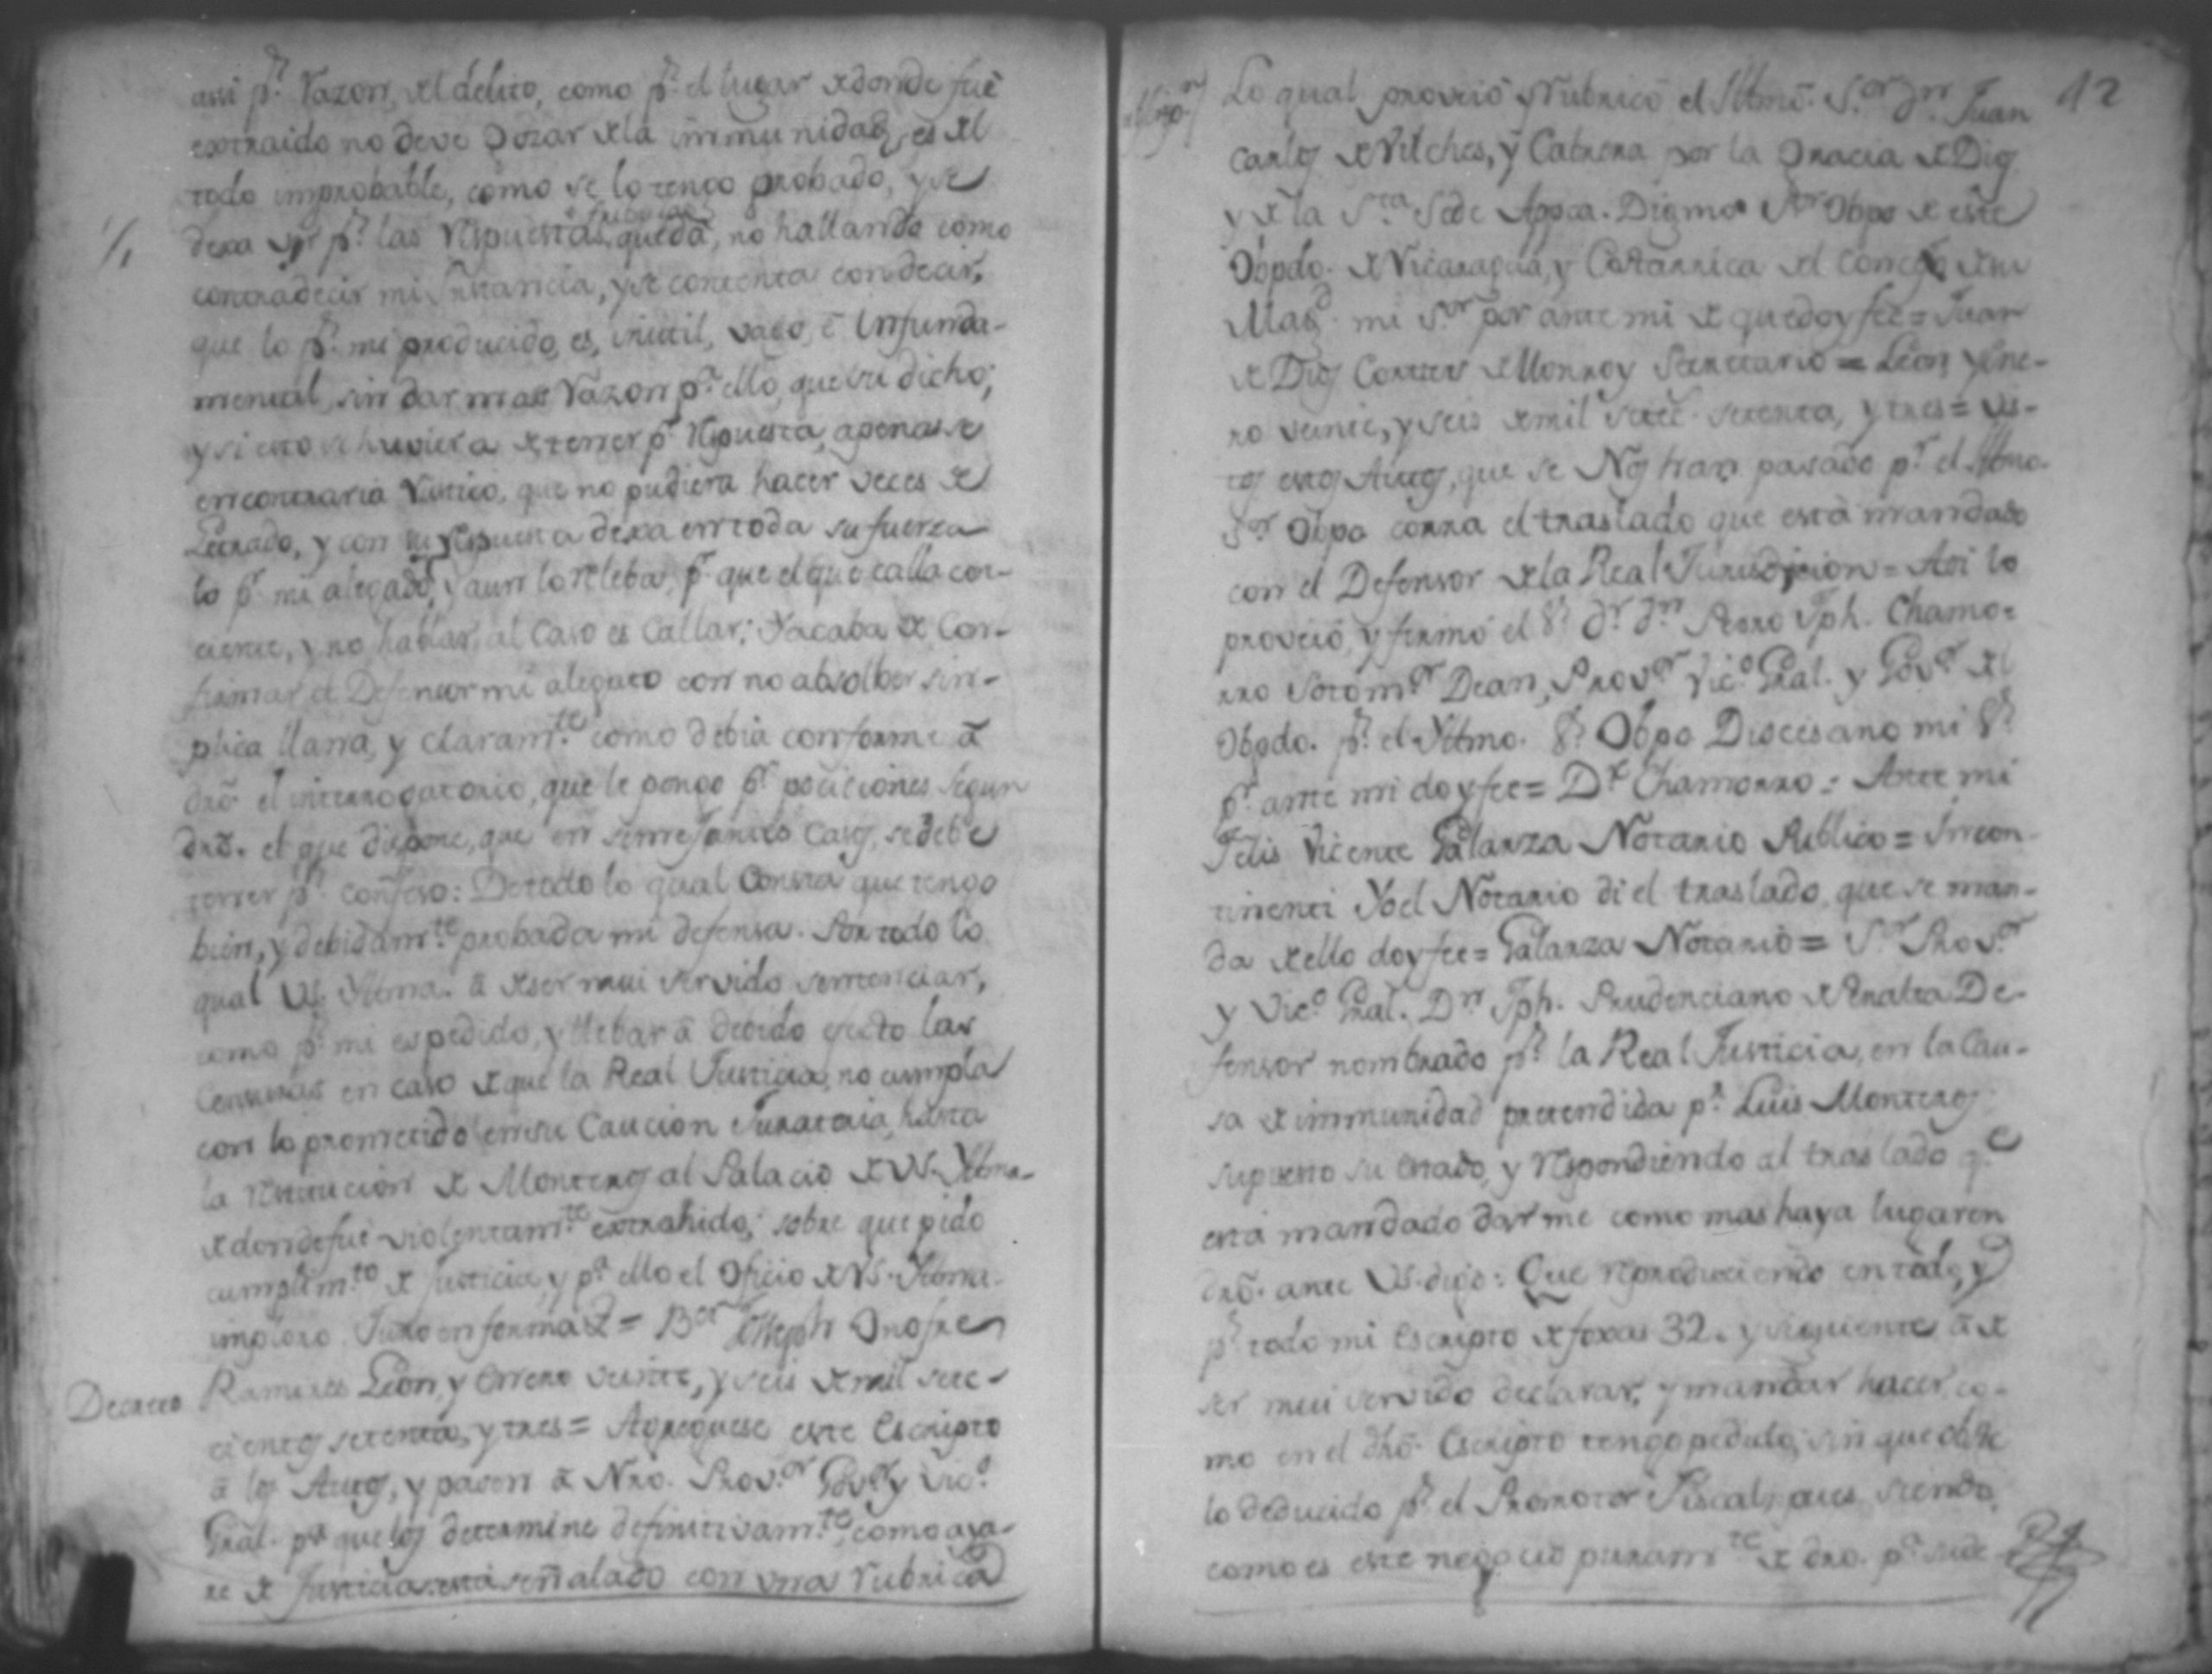 assi pr. razon, del delito, como pr. el lugar dedonde fuè
extraido no deve gozar dela immunidad, es del
todo improbable, como se lo tengo probado, y se
dexa ver pr. las respuestas, queda, no hallando como
contradecir mi Instancia, y se contenta con decir,
que lo pr. mi producido, es, inutil, vago, è Infunda-
mental, sin dar mas razon pa. ello, que su dicho;
y si esto se huviera de tener pr. respuesta, apenas se
encontraria rustico, que no pudiera hacer veces de
Letrado, y con su respuesta dexa en toda su fuerza
lo pr. mi alegado, y aun lo releba, pr. que el que calla con-
ciente, y no hablar, al caso es callar; Y acaba de Con-
firmar el Defensor mi alegato con no absolber sin-
plica llana, y claramte. como debia conforme â
dro. el interrogatorio, que le pongo pr. pociciones segun
dro. el que dispone, que en semejantes casos, se debe
tener pr. confeso: De todo lo qual consta que tengo
bien, y debidamte. probada mi defensa. Por todo lo
qual VS. Yltma. â de ser mui servido sentenciar,
como pr. mi es pedido, y llebar â debido efecto las
Censuras en caso de que la Real Justicia, no cumpla
con lo prometido en su Caucion Juratoria, hasta
la restitucion de Monteros al Palacio de VS. Yltma.
de donde fue violentamte. extrahido; sobre que pido
cumplimto. de Justicia, y pa. ello el Oficio de VS. Yltma.
imploro. Juro en forma & = Br. Joseph Onofre
Decreto Ramires Leon, y Enero veinte, y seis de mil sete-
cientos setenta, y tres = Agreguese este Escripto
â los Autos, y pasen â Nro. Provor. Govor. y Vico.
Gral. pa. que los determine definitivamte. como aya-
re de Justicia està señalado con una rubrica
12
Lo qual proveiò y rubricò el Yltmo. Sor. Dr. Dn. Juan
Carlos de Vilches, y Cabrera por la Gracia de Dios
y de la Sta. Sede Appca. Digmo. Sor. Obpo de este
Obpdo. de Nicaragua, y Costarrica del Consejo de su
Magd. mi Sor. por ante mi de que doy fee = Juan
de Dios Cortes de Monroy Secretario = Leon y Ene-
ro veinte, y seis de mil setes. setenta, y tres = Vis-
tos estos Autos, que se Nos han pasado pr. el Yltmo.
Sor. Obpo corra el traslado que està mandado
con el Defensor de la Real Jurisdiccion = Asi lo
proveiò, y firmò el Sr. Dr. Dn. Pedro Jph. Chamo-
rro Sotomor. Dean, Provor. Vico. Gral. y Govor. del
Obpdo. pr. el Yltmo. Sr. Obpo Diocesano mi Sr.
pr. ante mi doy fee = Dr. Chamorro = Ante mi
Felis Vicente Galarza Notario Publico = Incon-
tinenti Yo el Notario di el traslado, que se man-
da de ello doy fee = Galarza Notario = Sor. Provor.
y Vico. Gral. Dn. Jph. Prudenciano de Peralta De-
fensor nombrado pr. la Real Justicia, en la Cau-
sa de immunidad pretendida pr. Luis Monteros
supuesto su estado, y respondiendo al traslado qe.
està mandado darme como mas haya lugar en
dro. ante VS. digo: Que reproduciendo en todo, y
pr. todo mi Escripto de foxas 32. y siguientes â de
ser mui servido declarar, y mandar hacer, co-
mo en el dho. Escripto tengo pedido, sin que obste
lo deducido pr. el Promotor Fiscal, pues siendo,
como es este negocio puramte. de dro. pa.